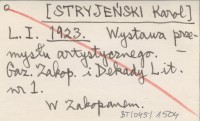 [STRYJEŃSKI Karol]
L. I. 1923. Wystawa prze-
mysłu artystycznego.
Gaz. Zakop. i Dekady Lit.
nr 1.
W Zakopanem.
BT1049 / 1504